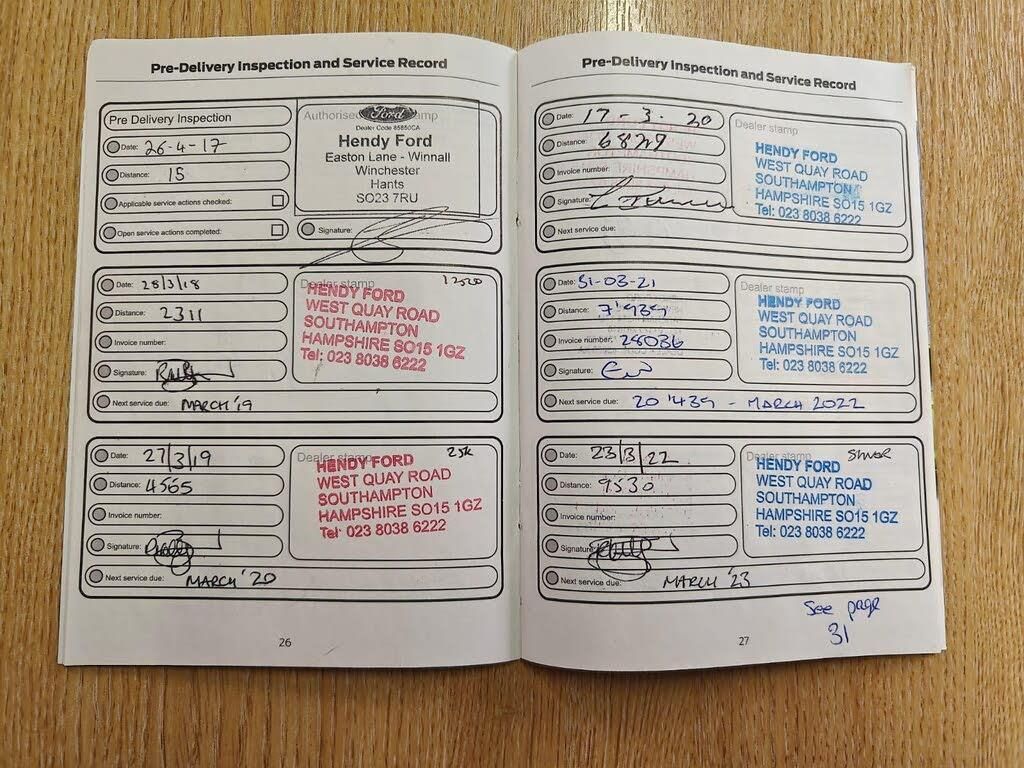 Pre-Delivery Inspection and Service Record
Pre Delivery Inspection
Date: 26-4-17
Distance: 15
Applicable service actions checked:
Open service actions completed:
Ford
Dealer Code 85850CA
Hendy Ford
Easton Lane - Winnall
Winchester
Hants
SO23 7RU
Signature:
Date: 28/3/18
Distance: 2311
Invoice number:
Signature:
Next service due: MARCH '19
Dealer stamp 12520
HENDY FORD
WEST QUAY ROAD
SOUTHAMPTON
HAMPSHIRE SO15 1GZ
Tel: 023 8038 6222
Date: 27/3/19
Distance: 4565
Invoice number:
Signature:
Next service due: MARCH '20
Dealer stamp 25k
HENDY FORD
WEST QUAY ROAD
SOUTHAMPTON
HAMPSHIRE SO15 1GZ
Tel: 023 8038 6222
26
Pre-Delivery Inspection and Service Record
Date: 17-3-20
Distance: 6829
Invoice number:
Signature:
Next service due:
Dealer stamp
HENDY FORD
WEST QUAY ROAD
SOUTHAMPTON
HAMPSHIRE SO15 1GZ
Tel: 023 8038 6222
Date: 31-03-21
Distance: 7'939
Invoice number: 28036
Signature:
Next service due: 20'439 - MARCH 2022
Dealer stamp
HENDY FORD
WEST QUAY ROAD
SOUTHAMPTON
HAMPSHIRE SO15 1GZ
Tel: 023 8038 6222
Date: 23/3/22
Distance: 9530
Invoice number:
Signature:
Next service due: MARCH '23
Dealer stamp
HENDY FORD
WEST QUAY ROAD
SOUTHAMPTON
HAMPSHIRE SO15 1GZ
Tel: 023 8038 6222
See page
31
27